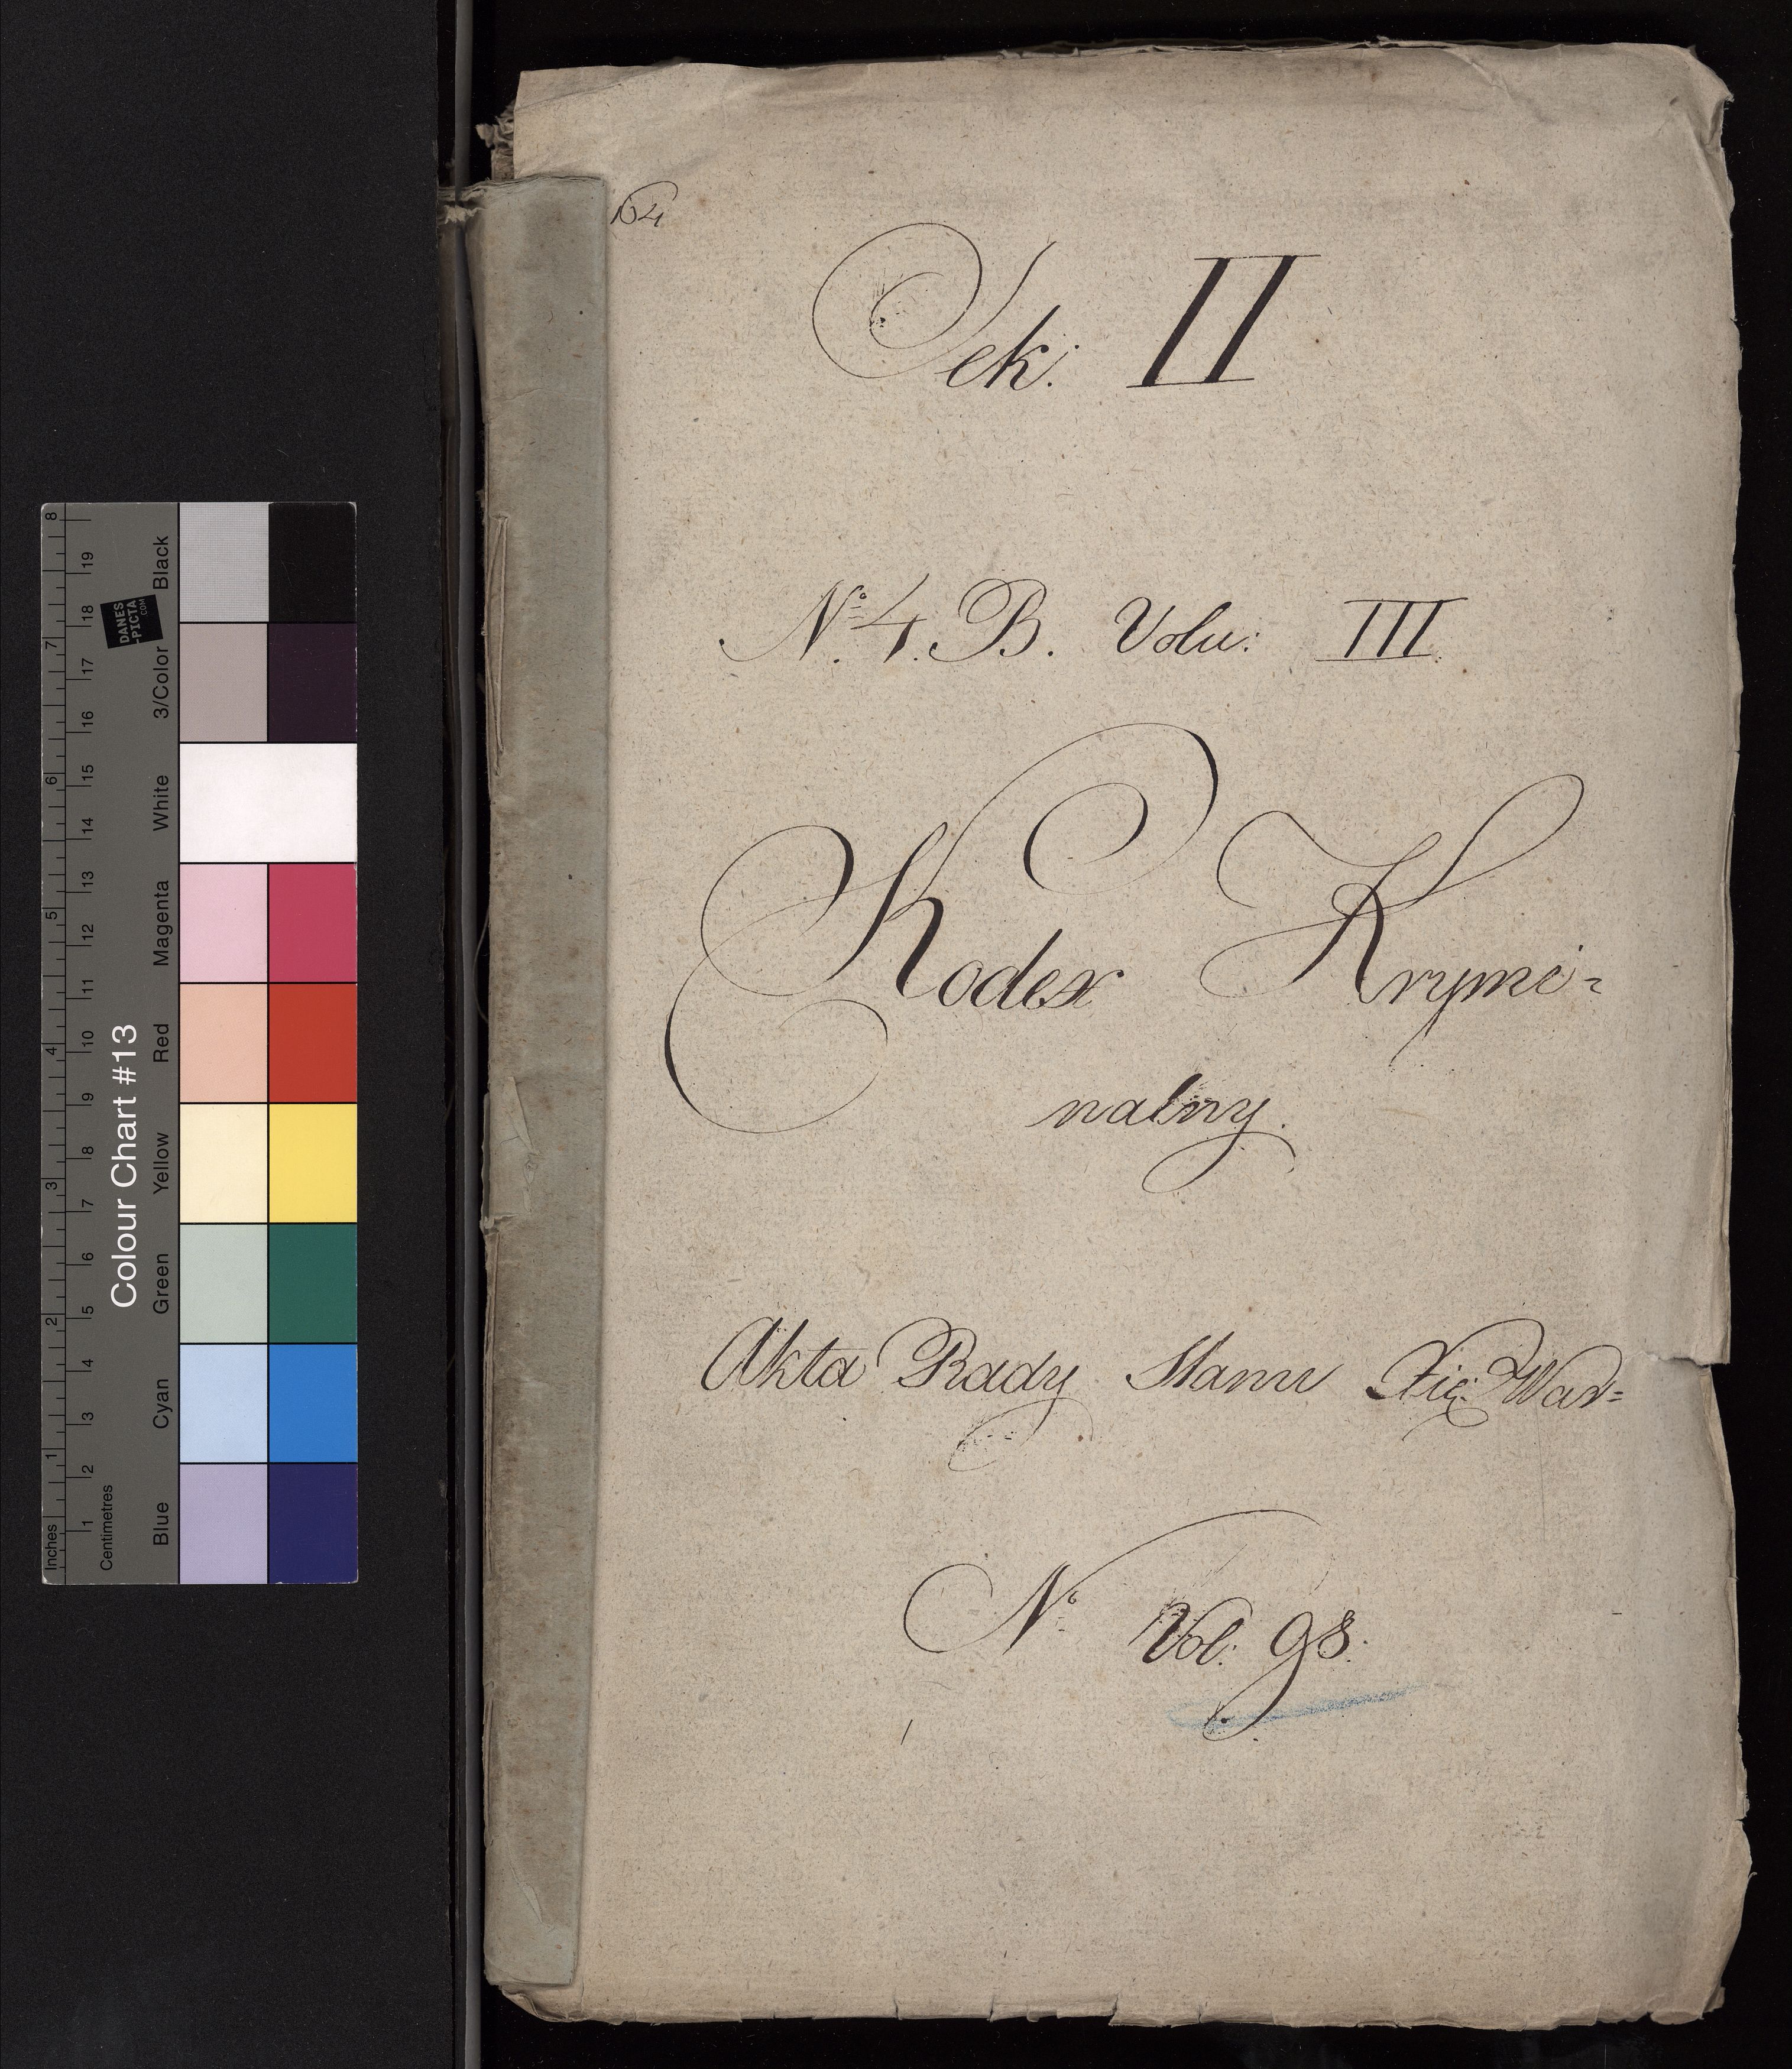 164
Sek: II
No 4. B. Volu: III.
Kodex Krymi=
nalny.
Akta Rady Stanu Xię: War=
No Vol: 98.
Colour Chart #13
Inches
Centimetres
DANES
-PICTA
.COM
Blue Cyan Green Yellow Red Magenta White 3/Color Black
1 2 3 4 5 6 7 8
1 2 3 4 5 6 7 8 9 10 11 12 13 14 15 16 17 18 19